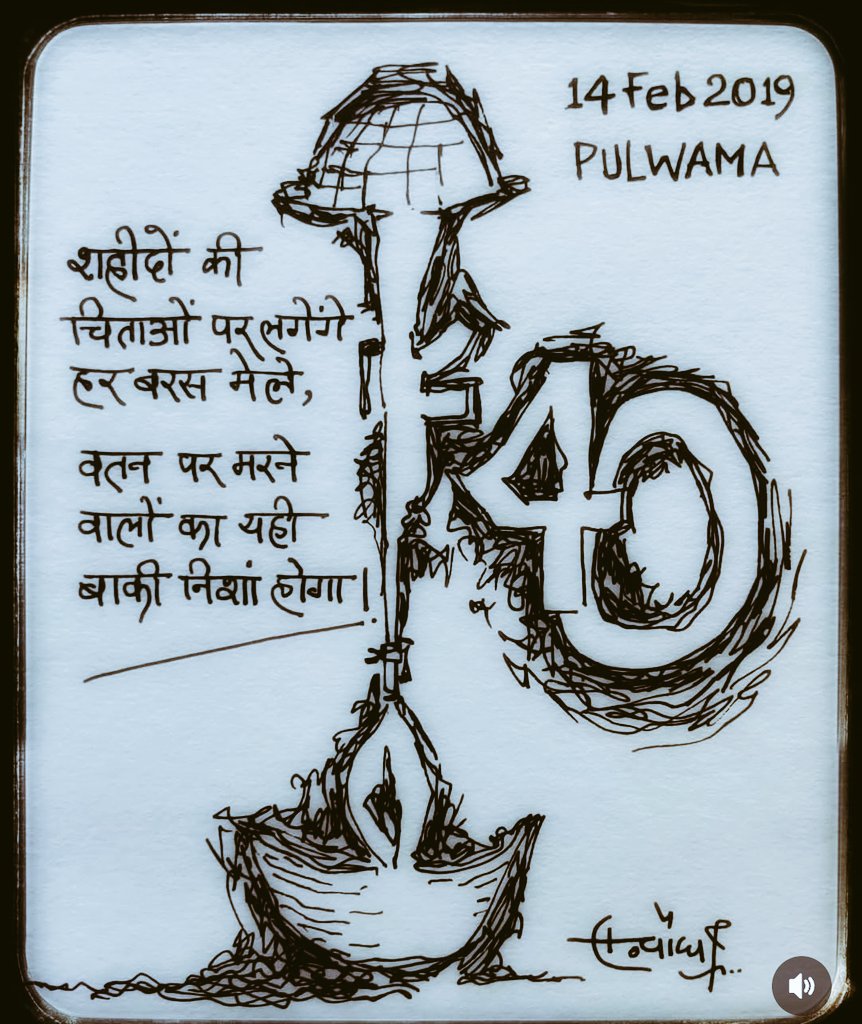 14 Feb 2019
PULWAMA
शहीदों की
चिताओं पर लगेंगे
हर बरस मेले,
वतन पर मरने
वालों का यही
बाकी निशां होगा।
40